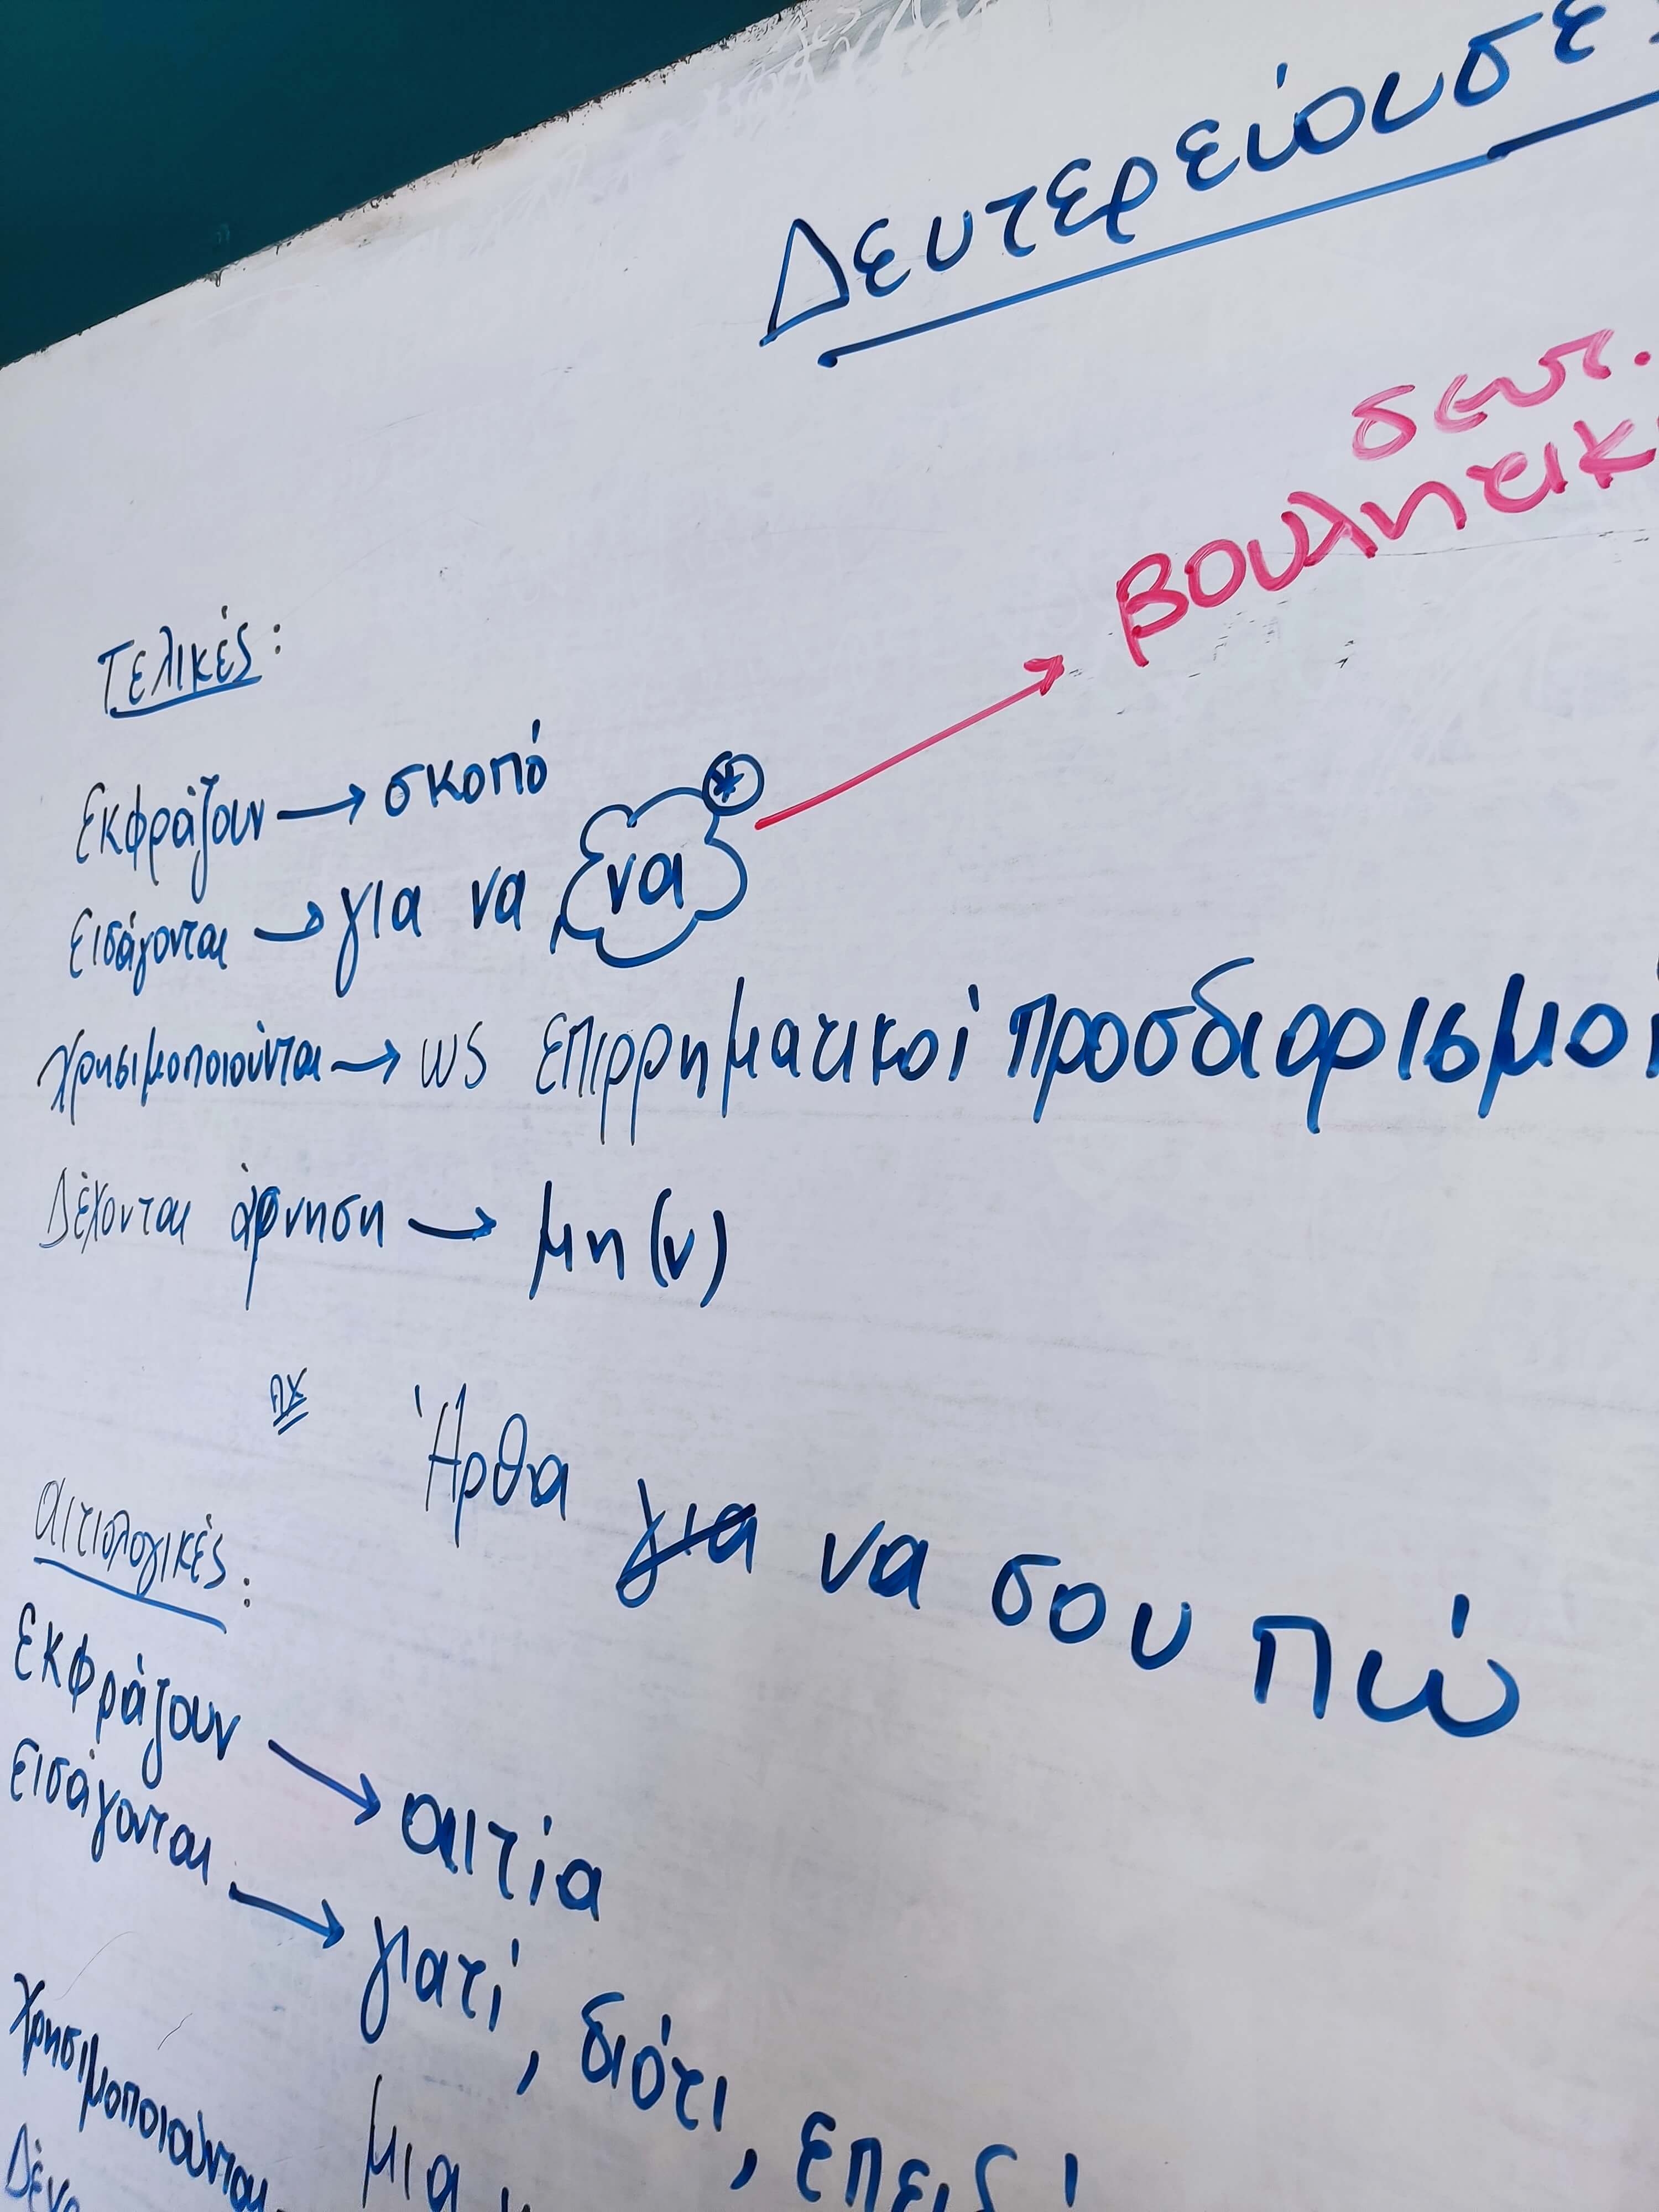 Δευτερεύουσε
δευτ.
βουλητικ
Τελικές:
Εκφράζουν → σκοπό
Εισάγονται → για να, να *
Χρησιμοποιούνται → ως επιρρηματικοί προσδιορισμοί
Δέχονται άρνηση → μη(ν)
πχ Ήρθα για να σου πω
αιτιολογικές:
Εκφράζουν → αιτία
εισάγονται → γιατί, διότι, επειδή
Χρησιμοποιούνται